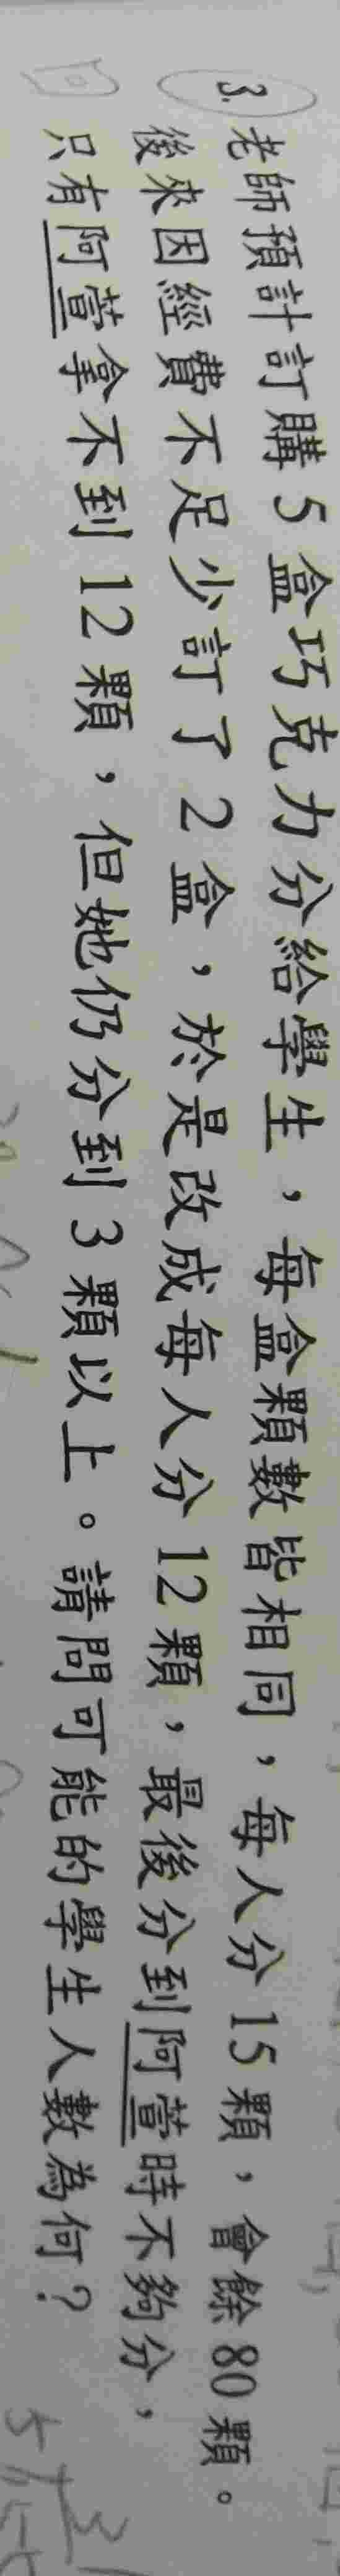 3. 老師預計訂購5盒巧克力分給學生，每盒顆數皆相同，每人分15顆，會餘80顆。
後來因經費不足少訂了2盒，於是改成每人分12顆，最後分到阿萱時不夠分，
只有阿萱拿不到12顆，但她仍分到3顆以上。請問可能的學生人數為何？